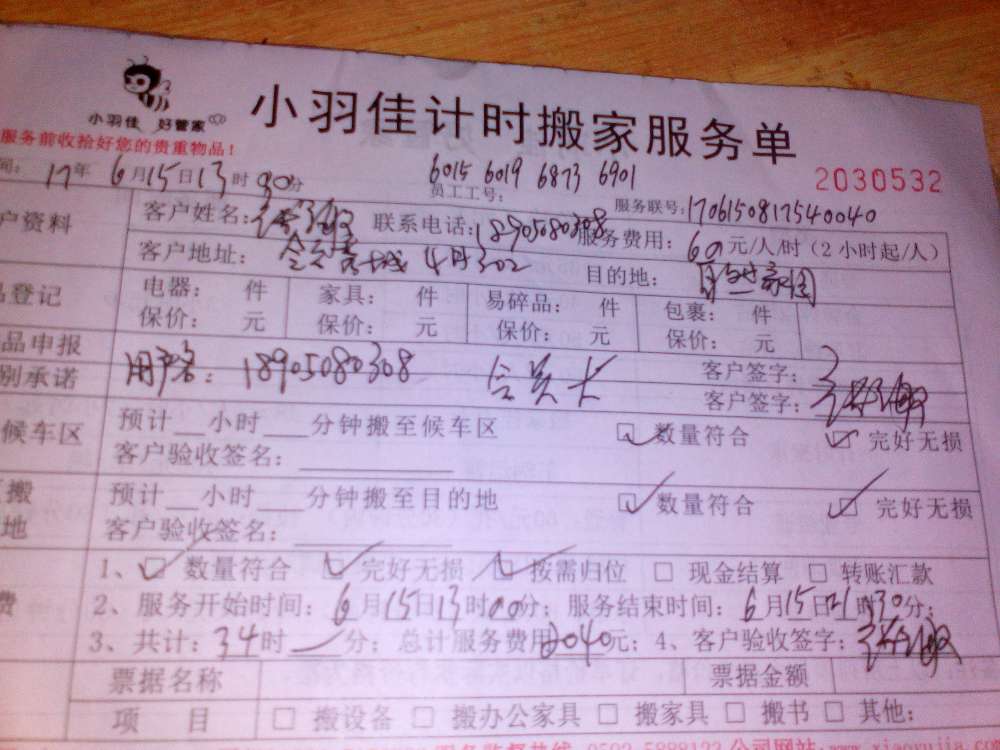 小羽佳 好管家
小羽佳计时搬家服务单
服务前收拾好您的贵重物品！
2030532
间： 17年6月15日13时30分
6015 6019 6873 6901
员工工号：
服务联号：170615081754040
户资料
客户姓名： 联系电话：18905080308 服务费用：60元/人/时（2小时起/人）
客户地址： 4月302 目的地： 家园
品登记
电器： 件 家具： 件 易碎品： 件 包裹： 件
保价： 元 保价： 元 保价： 元 保价： 元
品申报
用户名：18905080308 会员卡
客户签字：
别承诺
客户签字：
候车区
预计__小时___分钟搬至候车区 数量符合 完好无损
客户验收签名：
搬
地
预计__小时___分钟搬至目的地 数量符合 完好无损
客户验收签名：
费
1、 数量符合 完好无损 按需归位 现金结算 转账汇款
2、服务开始时间：6月15日13时00分；服务结束时间：6月15日21时30分；
3、共计：34时 分；总计服务费用2040元；4、客户验收签字：
票据名称 票据金额
项 目 搬设备 搬办公家具 搬家具 搬书 其他：
服务监督热线 0592-5888123 公司网站